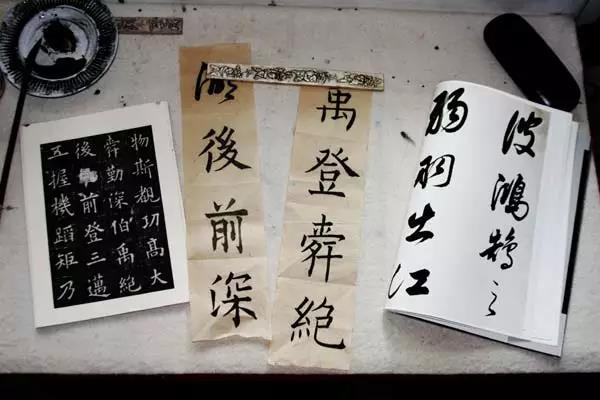 物斯覩功高大
舜勤深伯禹絕
後前登三邁
五握機蹈矩乃
禹登舜絕
後前深
波鴻之
羽出江